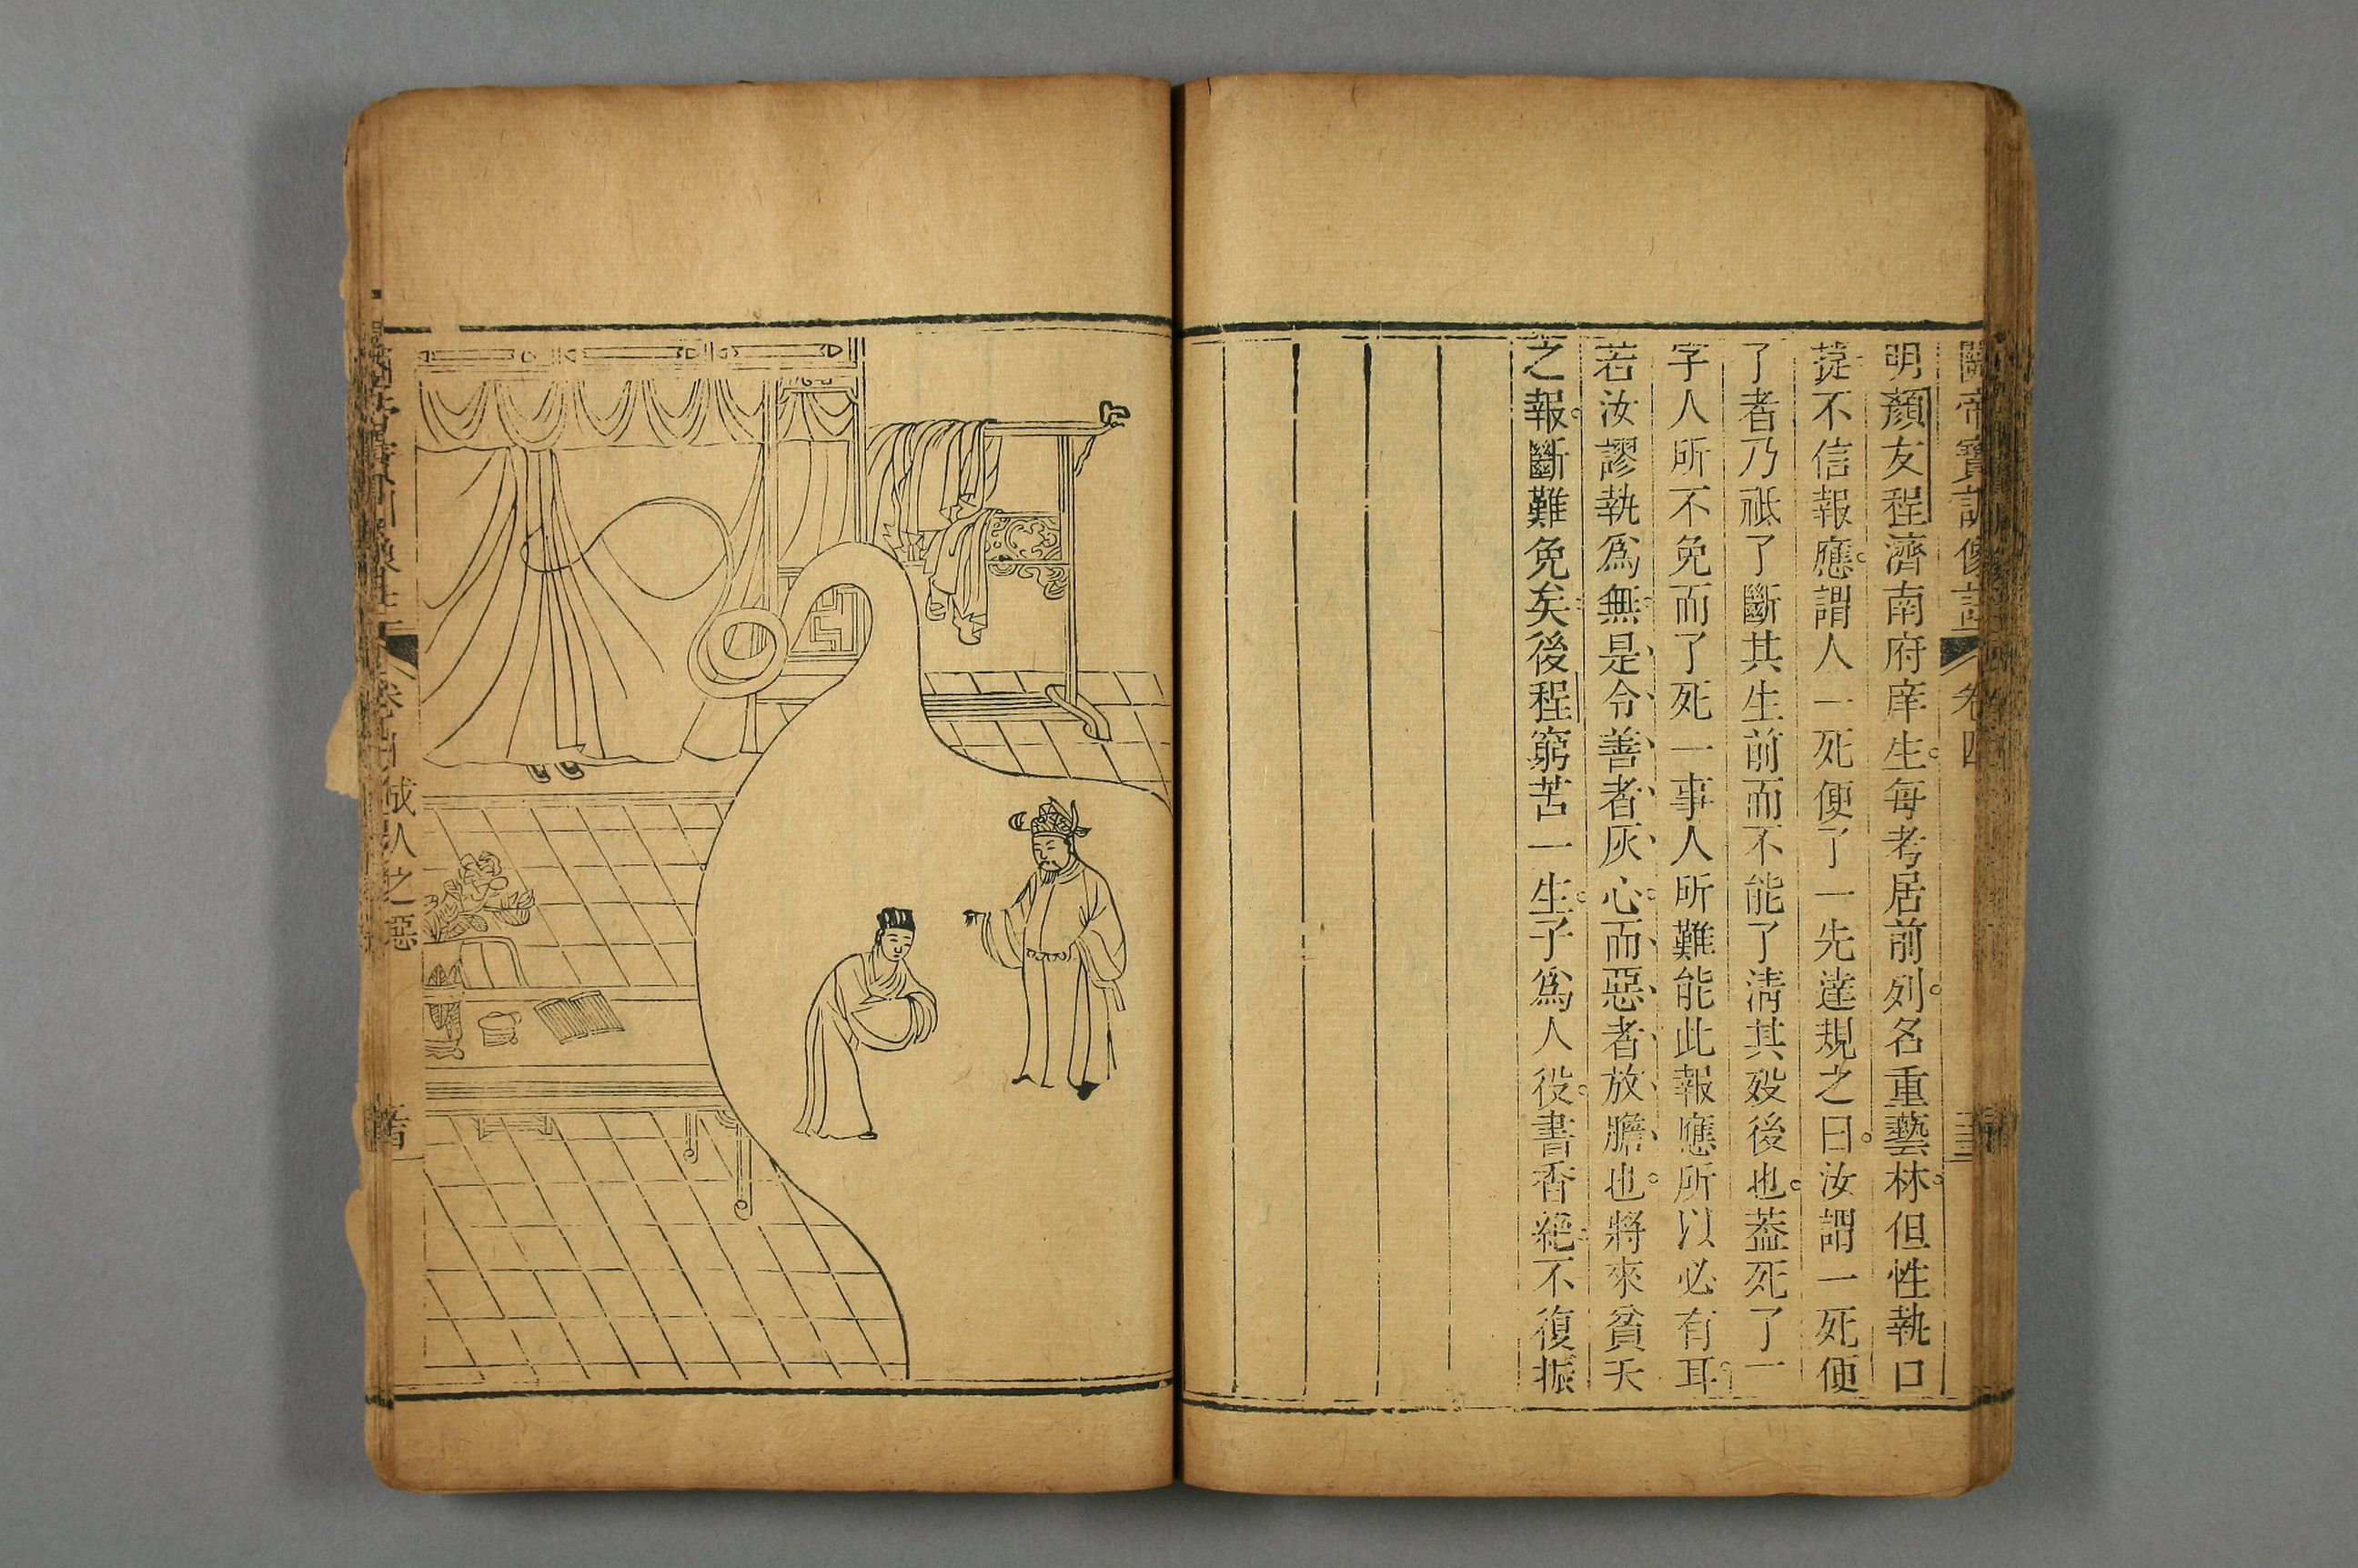 關帝寶訓像註 卷四
明顏友程濟南府庠生每考居前列名重藝林但性執口
㨗不信報應謂人一死便了一先達規之曰汝謂一死便
了者乃祗了斷其生前而不能了淸其歿後也葢死了一
字人所不免而了死一事人所難能此報應所以必有耳
若汝謬執爲無是令善者灰心而惡者放膽也將來貧夭
之報斷難免矣後程窮苦一生子爲人役書香絕不復振
成人之惡